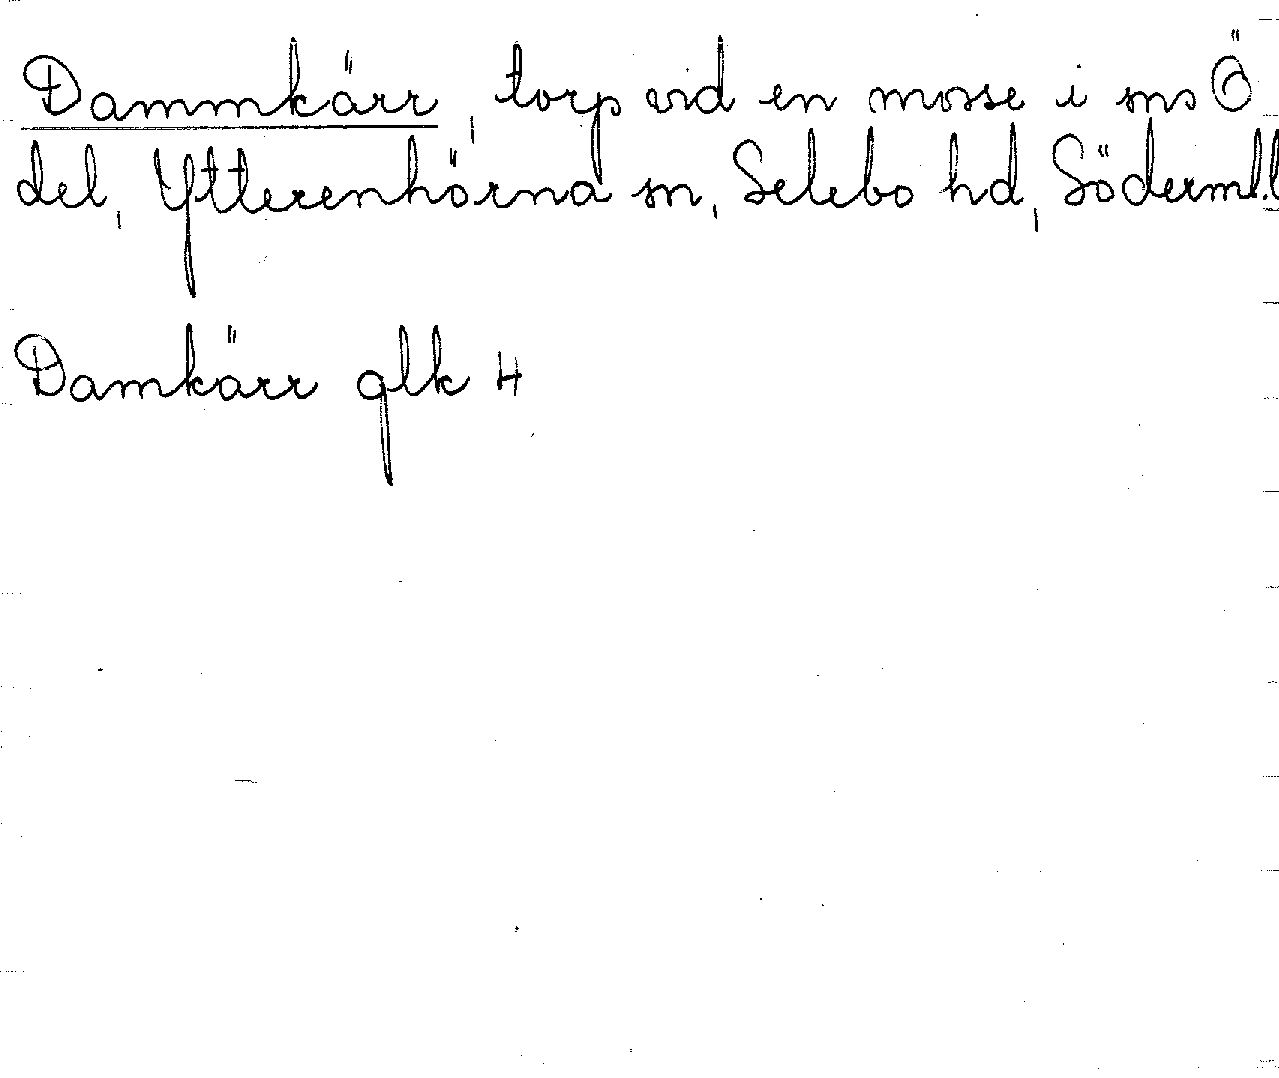 Dammkärr, torp vid en mosse i sns Ö
del, Ytterenhörna sn, Selebo hd, Söderml.l
Damkärr glk 4